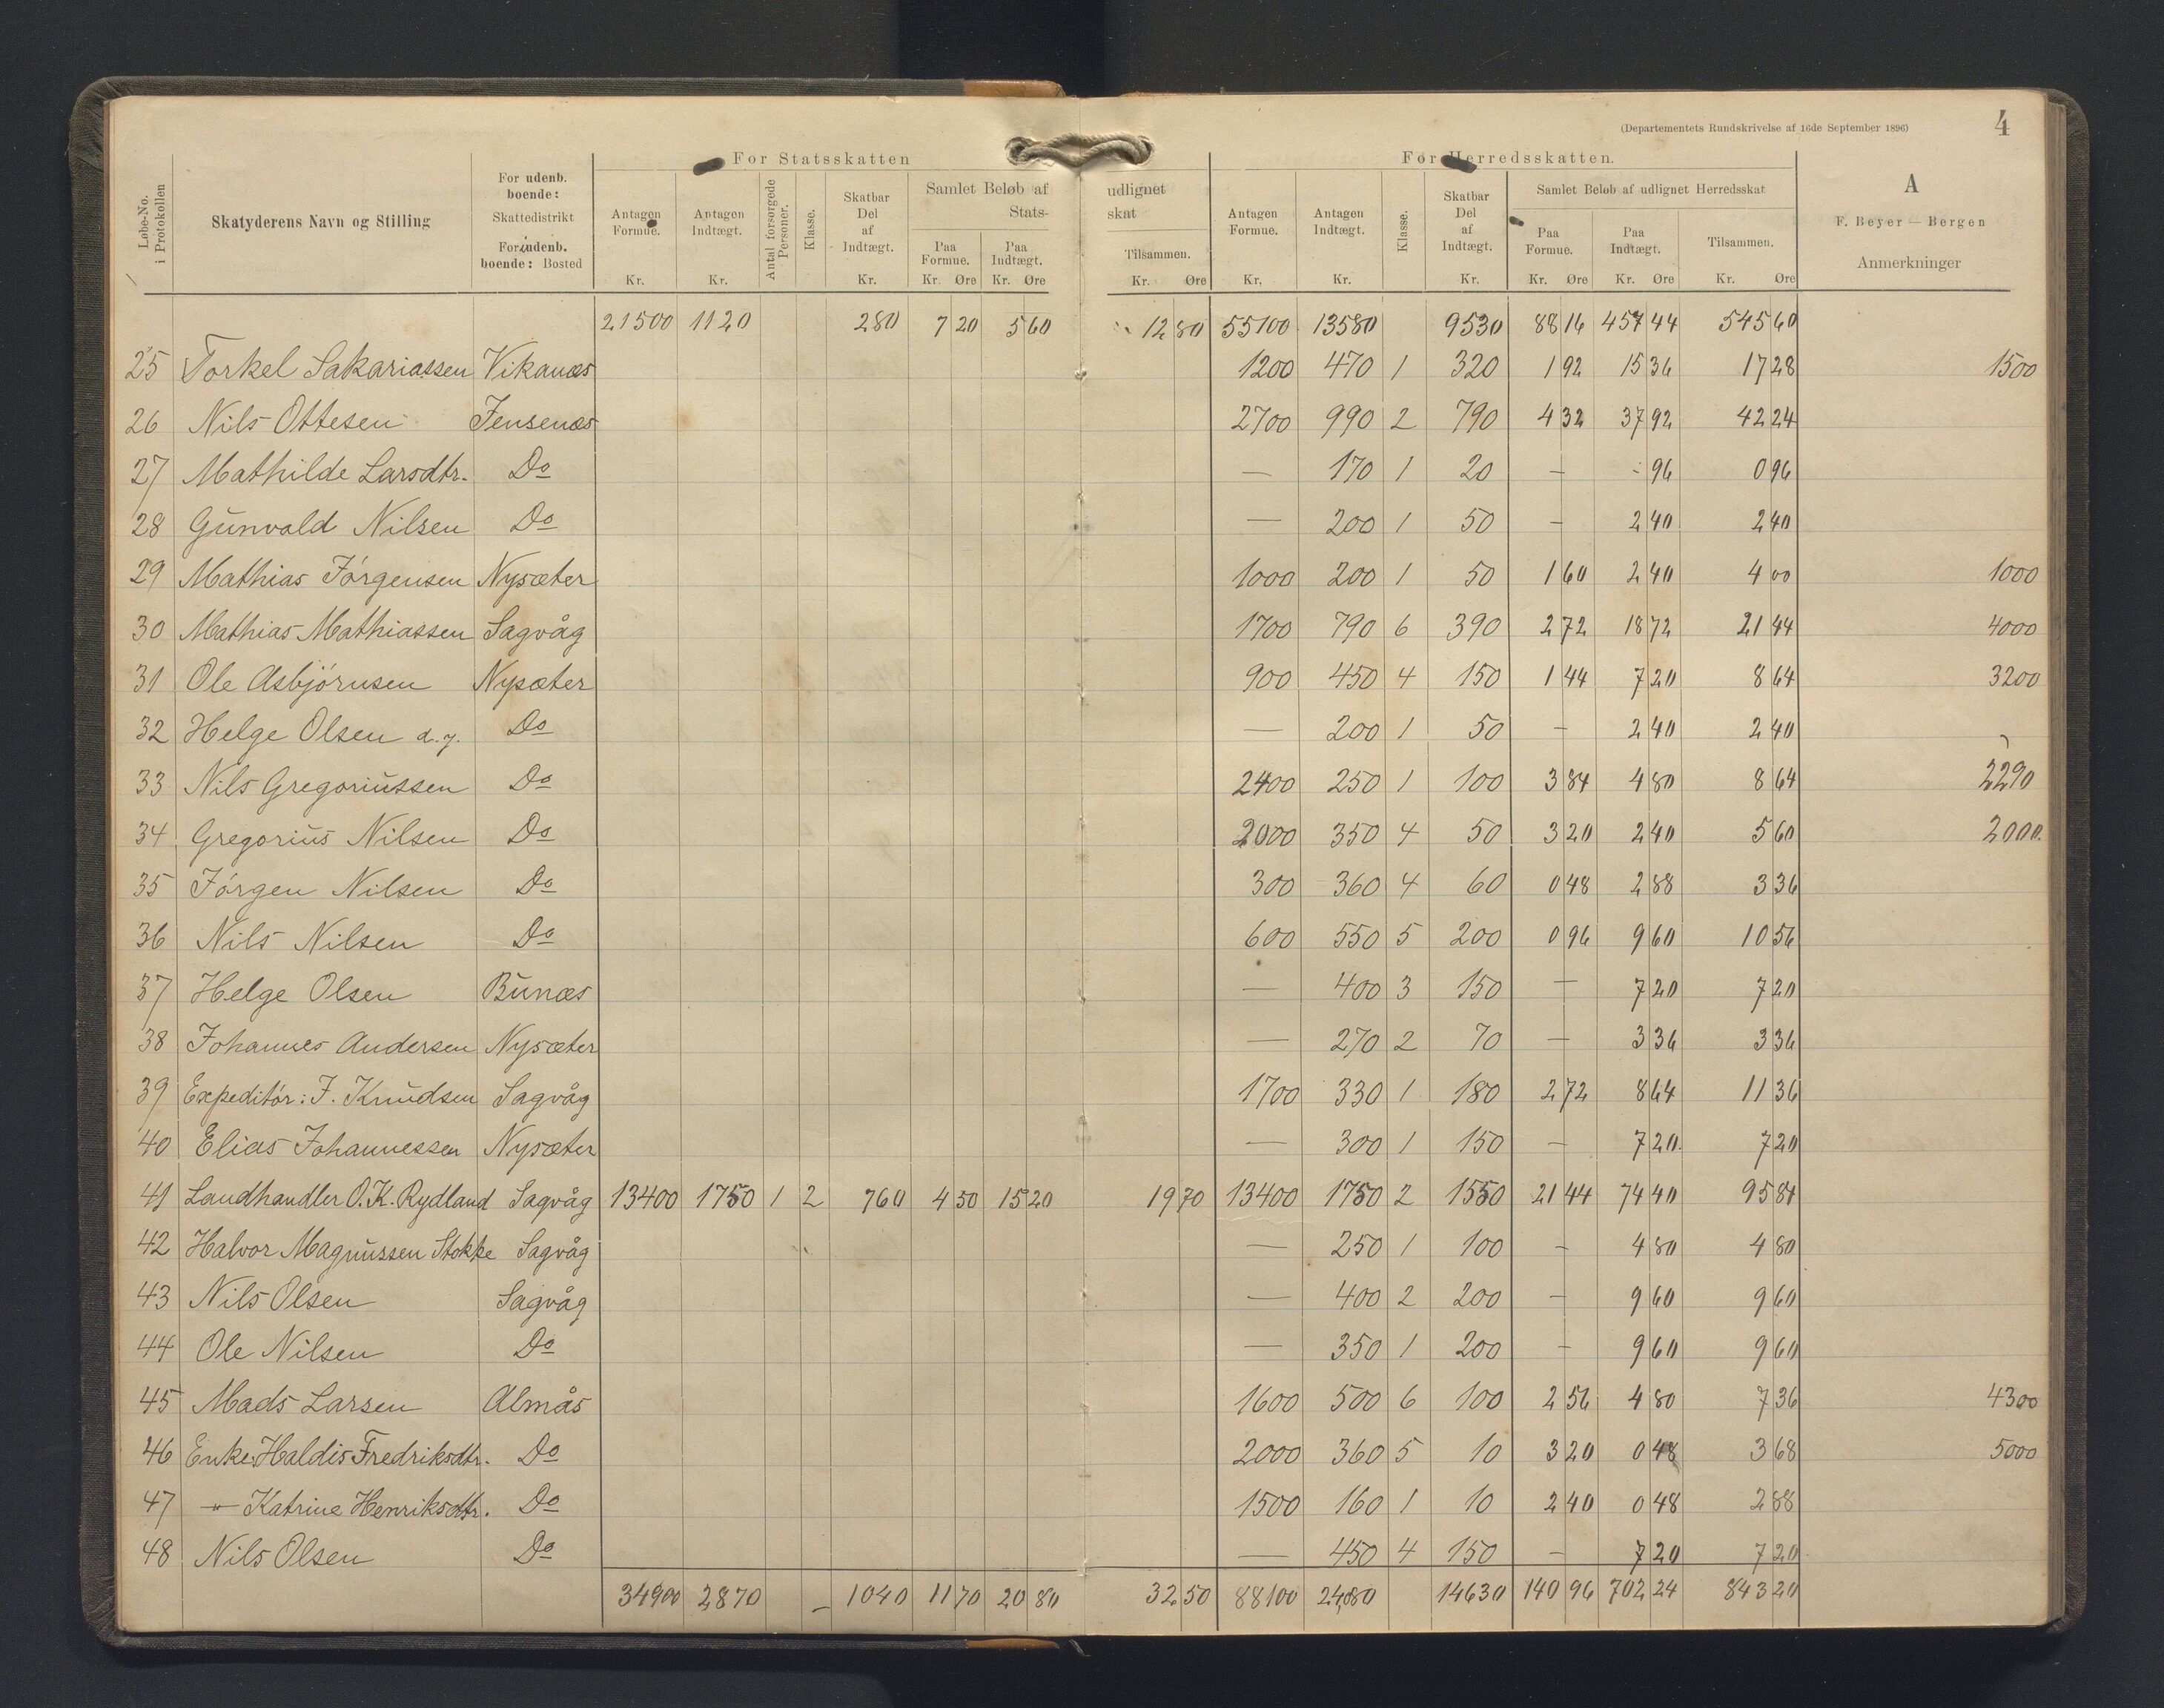 (Departementets Rundskrivelse af 16de September 1896) 4
For Statsskatten For Herredsskatten.
Løbe-No. i Protokollen Skatyderens Navn og Stilling For udenb. boende: Skattedistrikt For indenb. boende: Bosted Antagen Formue. Kr. Antagen Indtægt. Kr. Antal forsørgede Personer. Klasse. Skatbar Del af Indtægt. Kr. Samlet Beløb af Stats- Paa Formue. Kr. Øre Paa Indtægt. Kr. Øre udlignet skat Tilsammen. Kr. Øre Antagen Formue. Kr. Antagen Indtægt. Kr. Klasse. Skatbar Del af Indtægt. Kr. Samlet Beløb af udlignet Herredsskat Paa Formue. Kr. Øre Paa Indtægt. Kr. Øre Tilsammen. Kr. Øre A F. Beyer — Bergen Anmerkninger
21500 1120 280 7 20 5 60 12 80 55100 13580 9530 88 16 457 44 545 60
25 Torkel Sakariassen Vikanæs 1200 470 1 320 1 92 15 36 17 28 1500
26 Nils Ottesen Jensenæs 2700 990 2 790 4 32 37 92 42 24
27 Mathilde Larsdtr. Do — 170 1 20 — - 96 0 96
28 Gunvald Nilsen Do — 200 1 50 — 2 40 2 40
29 Mathias Jörgensen Nysæter 1000 200 1 50 1 60 2 40 4 00 1000
30 Mathias Mathiassen Sagvåg 1700 790 6 390 2 72 18 72 21 44 4000
31 Ole Asbjörnsen Nysæter 900 450 4 150 1 44 7 20 8 64 3200
32 Helge Olsen d.y. Do — 200 1 50 — 2 40 2 40
33 Nils Gregoriussen Do 2400 250 1 100 3 84 4 80 8 64 2290
34 Gregorius Nilsen Do 2000 350 4 50 3 20 2 40 5 60 2000.
35 Jörgen Nilsen Do 300 360 4 60 0 48 2 88 3 36
36 Nils Nilsen Do 600 550 5 200 0 96 9 60 10 56
37 Helge Olsen Bunæs — 400 3 150 — 7 20 7 20
38 Johannes Andersen Nysæter — 270 2 70 — 3 36 3 36
39 Expeditör: J. Knudsen Sagvåg 1700 330 1 180 2 72 8 64 11 36
40 Elias Johannessen Nysæter — 300 1 150 — 7 20. 7 20
41 Landhandler O. K. Rydland Sagvåg 13400 1750 1 2 760 4 50 15 20 19 70 13400 1750 2 1550 21 44 74 40 95 84
42 Halvor Magnussen Stokke Sagvåg — 250 1 100 — 4 80 4 80
43 Nils Olsen Sagvåg — 400 2 200 — 9 60 9 60
44 Ole Nilsen Do — 350 1 200 — 9 60 9 60
45 Mads Larsen Almås 1600 500 6 100 2 56 4 80 7 36 4300
46 Enke Haldis Fredriksdtr. Do 2000 360 5 10 3 20 0 48 3 68 5000
47 —"— Katrine Henriksdtr. Do 1500 160 1 10 2 40 0 48 2 88
48 Nils Olsen Do — 450 4 150 — 7 20 7 20
34900 2870 — 1040 11 70 20 80 32 50 88100 24080 14630 140 96 702 24 843 20